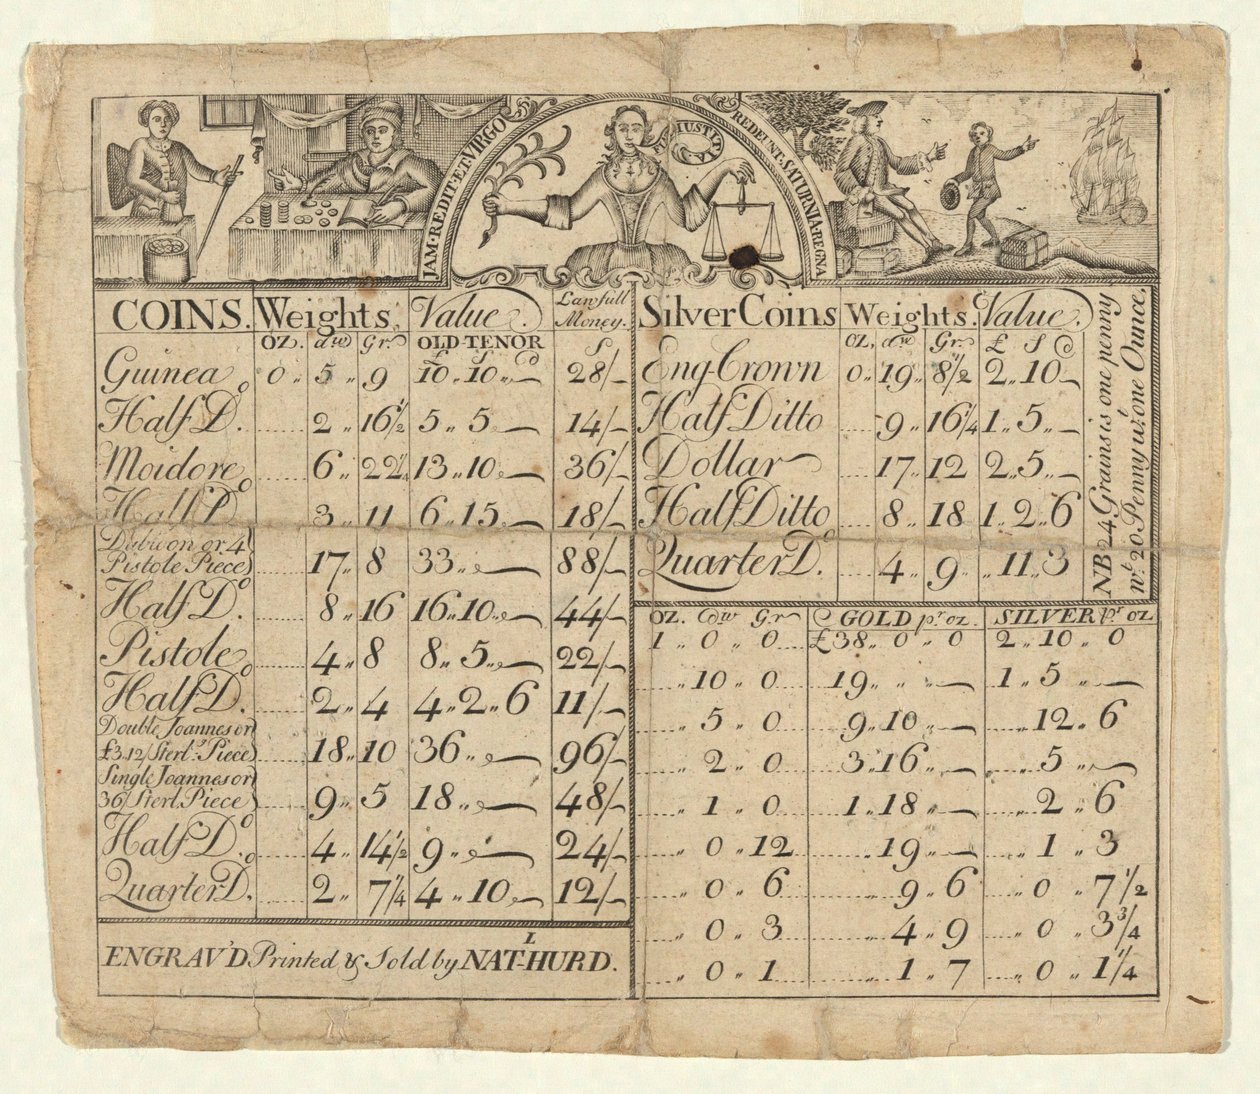 JAM·REDIT·ET·VIRGO
IUSTITIA
REDEUNT·SATURNIA·REGNA
COINS. Weights. Value. Lawfull Money.
OZ. dw Gr. OLD TENOR
£ S d S
Guinea 0 „ 5 „ 9 10 „ 10 „ — 28/—
Half Do. 2 „ 16 1/2 5 „ 5 — 14/—
Moidore 6 „ 22 1/4 13 „ 10 — 36/—
Half Do 3 „ 11 6 „ 15 — 18/—
Dublwon or 4
Pistole Piece 17 „ 8 33 „ — 88/—
Half Do. 8 „ 16 16 „ 10 — 44/—
Pistole 4 „ 8 8 „ 5 „ — 22/—
Half Do. 2 „ 4 4 „ 2 „ 6 11/—
Double Joannes or
£3.12/Sterlg. Piece 18 „ 10 36 „ — 96/—
Single Joannes or
36/Sterl. Piece 9 „ 5 18 „ — 48/—
Half Do. 4 „ 14 1/2 9 „ — 24/—
Quarter Do. 2 „ 7 1/4 4 „ 10 — 12/—
ENGRAV'D Printed & Sold by NATL. HURD.
Silver Coins Weights. Value.
OZ, dw Gr. £ S d
Eng. Crown 0 „ 19 „ 8 1/2 2 „ 10 —
Half Ditto 9 „ 16 1/4 1 „ 5 „ —
Dollar 17 „ 12 2 „ 5 „ —
Half Ditto 8 „ 18 1 „ 2 „ 6
Quarter Do. 4 „ 9 „ 11 „ 3
NB 24 Grains is one penny
wt. 20 Penny wt. one Ounce.
OZ. dw Gr GOLD pr oz. SILVER pr oz
1 „ 0 „ 0 £38 „ 0 „ 0 2 „ 10 „ 0
„ 10 „ 0 19 „ „ — 1 „ 5 „ —
„ 5 „ 0 9 „ 10 „ — „ 12 „ 6
„ 2 „ 0 3 „ 16 „ — „ 5 „ —
„ 1 „ 0 1 „ 18 „ — „ 2 „ 6
„ 0 „ 12 „ 19 „ — „ 1 „ 3
„ 0 „ 6 „ 9 „ 6 „ 0 „ 7 1/2
„ 0 „ 3 „ 4 „ 9 „ 0 „ 3 3/4
„ 0 „ 1 „ 1 „ 7 „ 0 „ 1 1/4